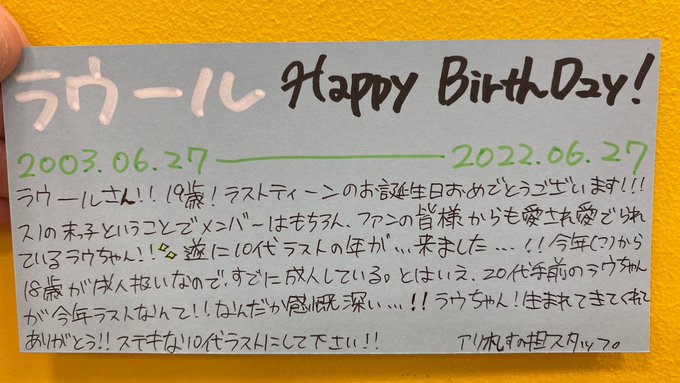 ラウール Happy BirthDay!
2003.06.27 ――― 2022.06.27
ラウールさん!! 19歳! ラストティーンのお誕生日おめでとうございます!!!
ス1の末っ子ということでメンバーはもちろん、ファンの皆様からも愛され愛でられ
ているラウちゃん!! 遂に10代ラストの年が...来ました...!! 今年(?)から
18歳が成人扱いなので、すでに成人している。とはいえ、20代手前のラウちゃん
が今年ラストなんて!! なんだか感慨深い...!! ラウちゃん! 生まれてきてくれて
ありがとう!! ステキな10代ラストにして下さい!!
アリ札すの担スタッフ。